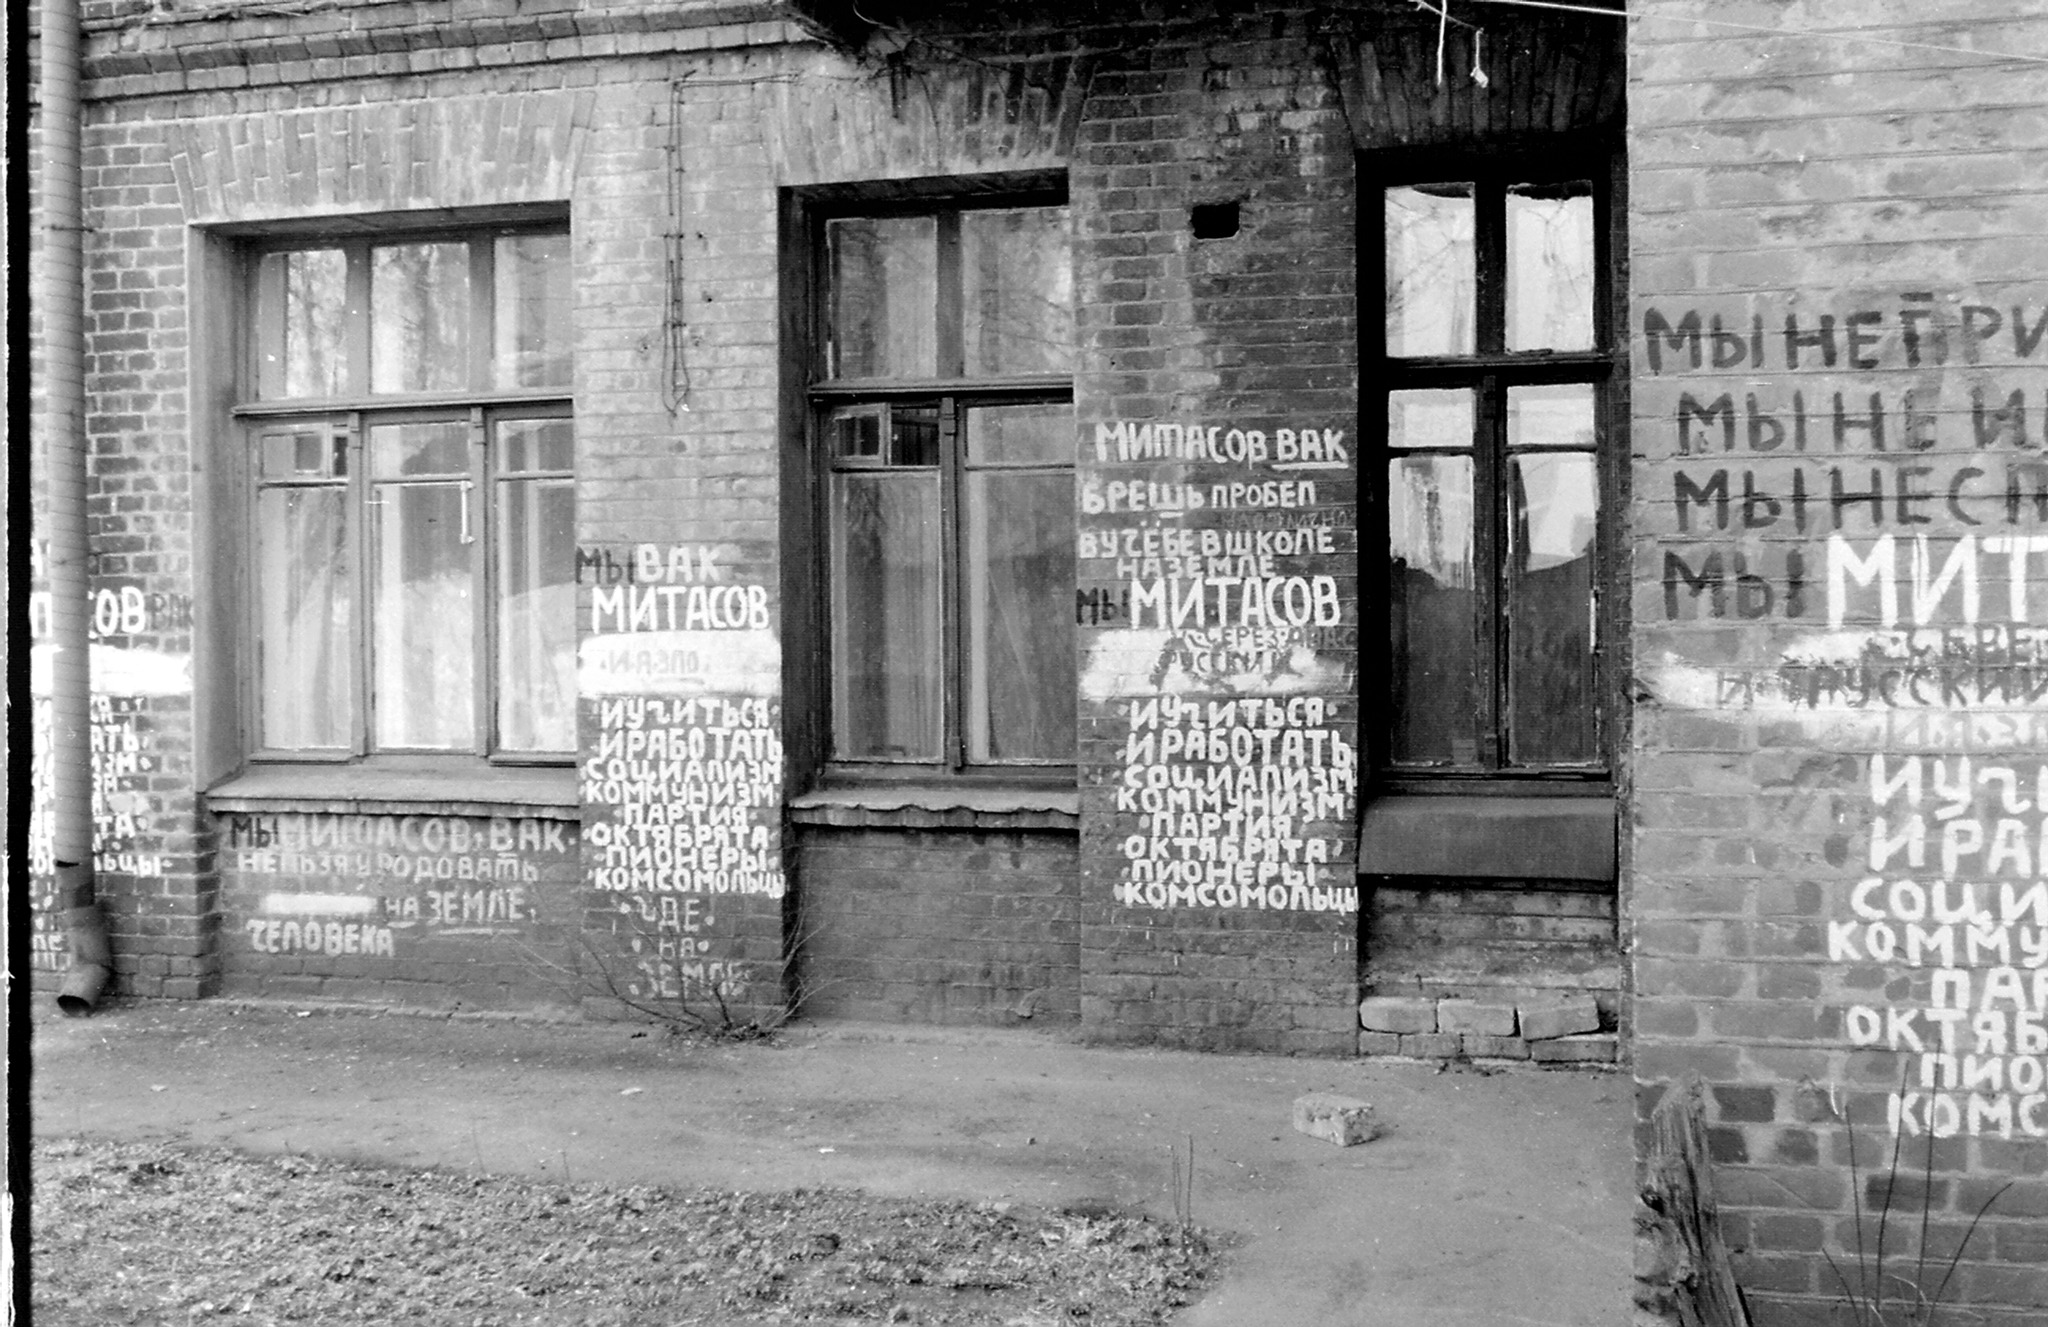 СОВ ВАК
МЫ МИТАСОВ, ВАК
НЕЛЬЗЯ УРОДОВАТЬ
НА ЗЕМЛЕ
ЧЕЛОВЕКА
МЫ ВАК
МИТАСОВ
И УЧИТЬСЯ
И РАБОТАТЬ
СОЦИАЛИЗМ
КОММУНИЗМ
ПАРТИЯ
ОКТЯБРЯТА
ПИОНЕРЫ
КОМСОМОЛЬЦЫ
ГДЕ
НА
ЗЕМЛЕ
МИТАСОВ ВАК
БРЕШЬ ПРОБЕЛ
В УЧЁБЕ В ШКОЛЕ
НА ЗЕМЛЕ
МЫ МИТАСОВ
И УЧИТЬСЯ
И РАБОТАТЬ
СОЦИАЛИЗМ
КОММУНИЗМ
ПАРТИЯ
ОКТЯБРЯТА
ПИОНЕРЫ
КОМСОМОЛЬЦЫ
МЫ НЕ ПРИ
МЫ НЕ И
МЫ НЕ СП
МЫ МИТ
И УЧИ
И РАБ
СОЦИ
КОММУ
ПАР
ОКТЯБ
ПИО
КОМС